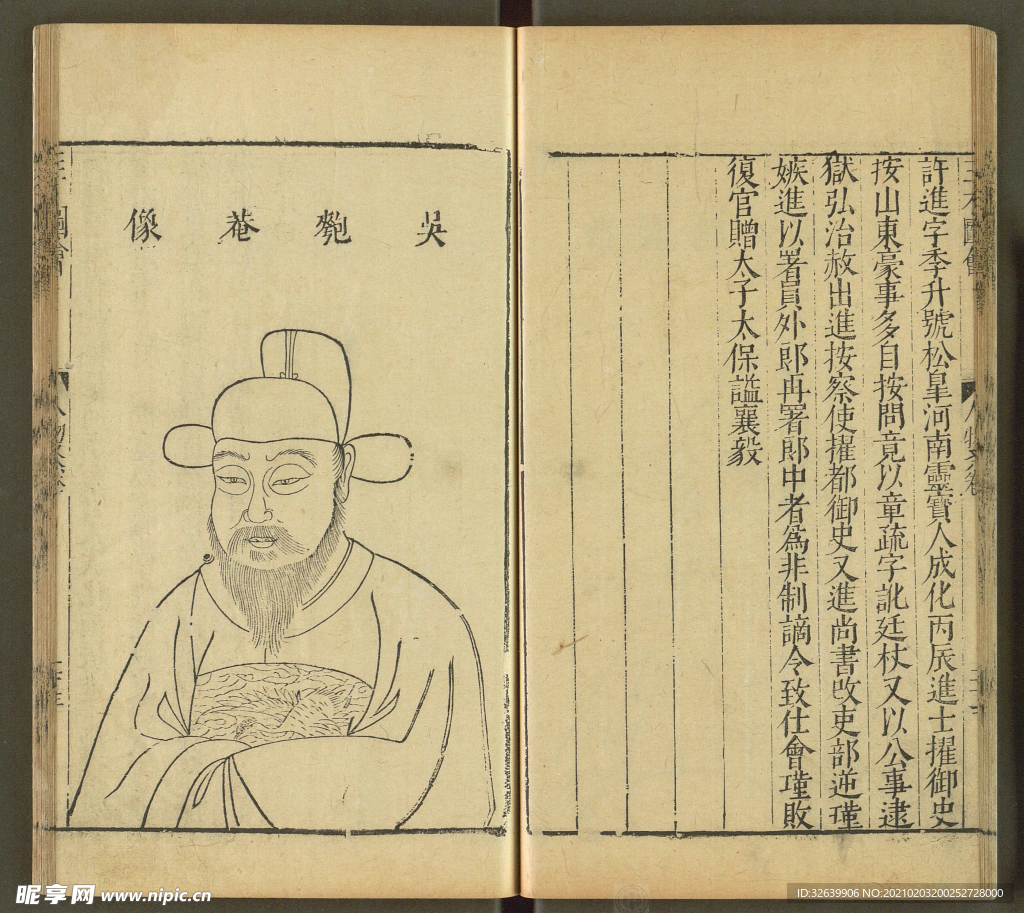 三才圖會
許進字季升號松皐河南靈寶人成化丙辰進士擢御史
按山東豪事多自按問竟以章疏字訛廷杖又以公事逮
獄弘治赦出進按察使擢都御史又進尚書改吏部逆瑾
嫉進以署員外郎再署郎中者為非制謫令致仕會瑾敗
復官贈太子太保謚襄毅
吳匏菴像
昵享网 www.nipic.cn
ID:32639906 NO:20210203200252728000